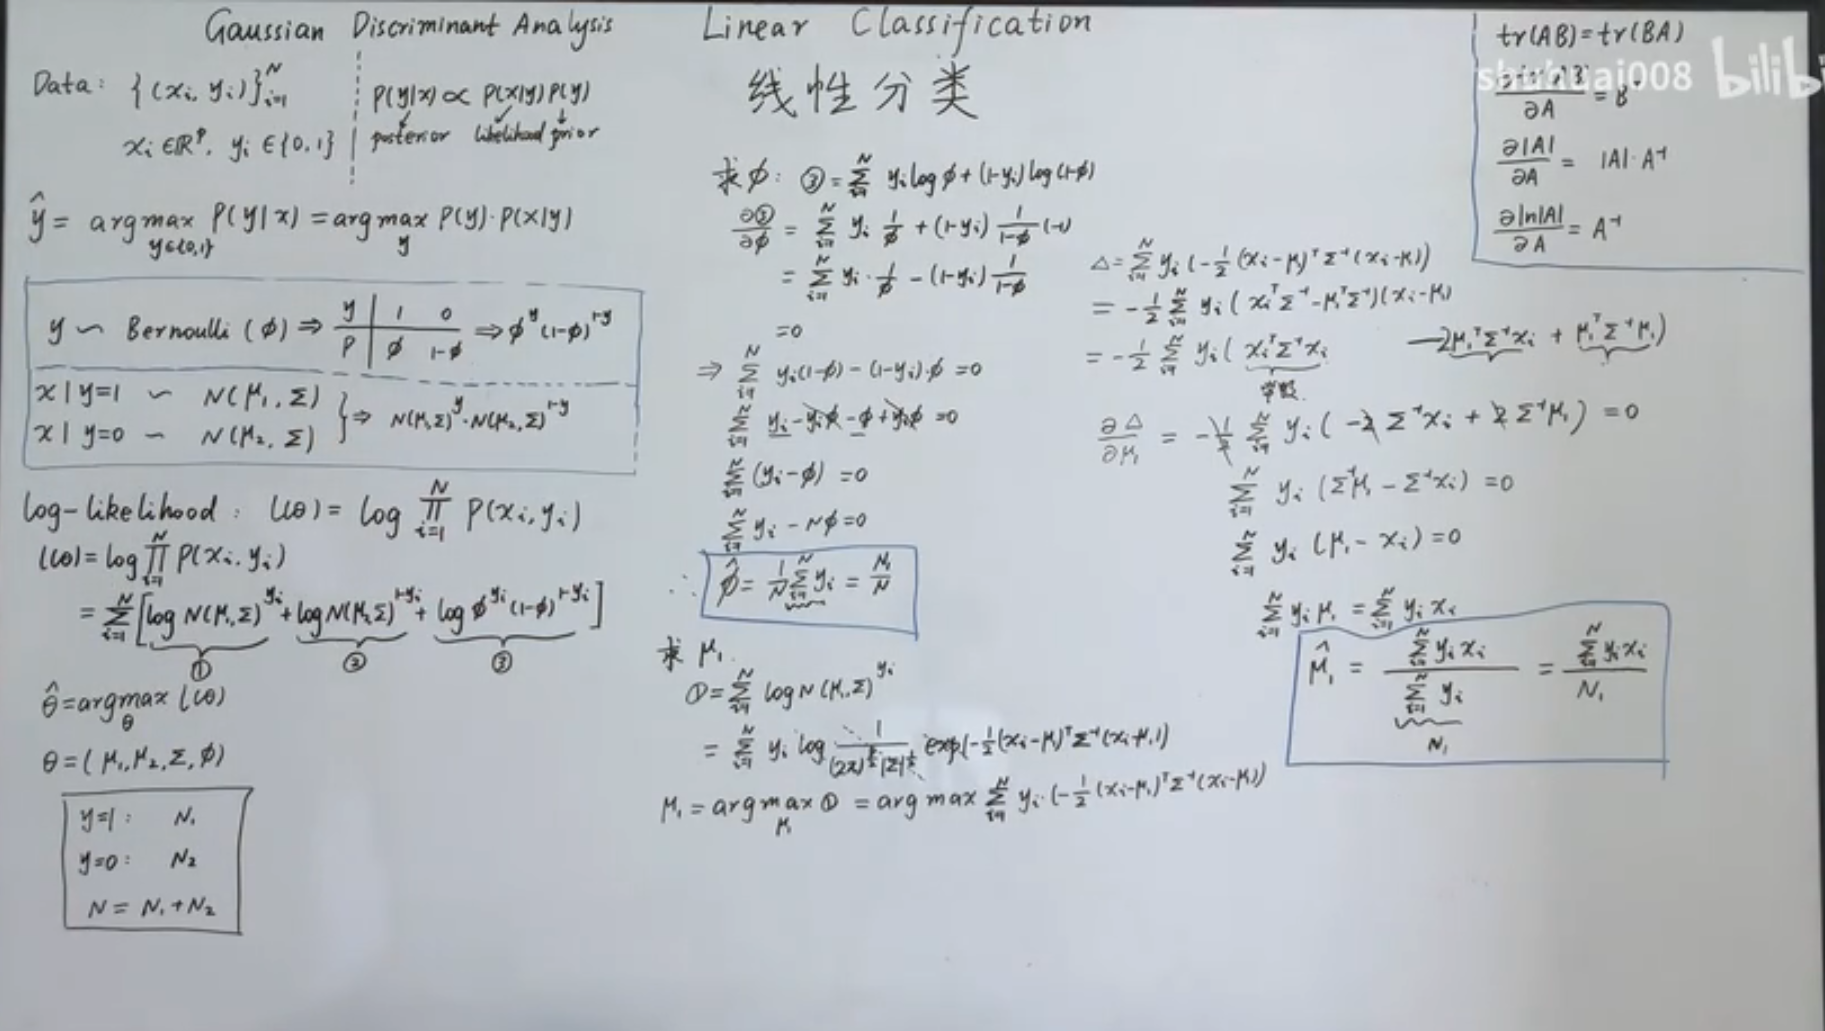 Gaussian Discriminant Analysis
Data: {(xi, yi)}ᵢ₌₁ᴺ
xi ∈ ℝᵖ, yi ∈ {0,1}
P(y|x) ∝ P(x|y) P(y)
posterior likelihood prior
ŷ = argmax_{y∈{0,1}} P(y|x) = argmax_y P(y)·P(x|y)
y ∼ Bernoulli (φ) ⇒ y | 1 0 ⇒ φ^y (1-φ)^{1-y}
P | φ 1-φ
x|y=1 ∼ N(μ₁, Σ)
x|y=0 ∼ N(μ₂, Σ)
} ⇒ N(μ₁,Σ)^y · N(μ₂,Σ)^{1-y}
log-likelihood: l(θ) = log ∏ᵢ₌₁ᴺ P(xi, yi)
l(θ) = log ∏ᵢ₌₁ᴺ P(xi, yi)
= Σᵢ₌₁ᴺ [log N(μ₁,Σ)^{yi} + log N(μ₂,Σ)^{1-yi} + log φ^{yi} (1-φ)^{1-yi}]
① ② ③
θ̂ = argmax_θ l(θ)
θ = (μ₁, μ₂, Σ, φ)
y=1: N₁
y=0: N₂
N = N₁ + N₂
Linear Classification
线性分类
求φ: ③ = Σᵢ₌₁ᴺ yi log φ + (1-yi) log (1-φ)
∂③/∂φ = Σᵢ₌₁ᴺ yi 1/φ + (1-yi) 1/(1-φ) (-1)
= Σᵢ₌₁ᴺ yi · 1/φ - (1-yi) 1/(1-φ)
=0
⇒ Σᵢ₌₁ᴺ yi(1-φ) - (1-yi)·φ = 0
Σᵢ₌₁ᴺ yi - yiφ - φ + yiφ = 0
Σᵢ₌₁ᴺ (yi-φ) = 0
Σᵢ₌₁ᴺ yi - Nφ = 0
∴ φ̂ = 1/N Σᵢ₌₁ᴺ yi = N₁/N
求 μ₁.
① = Σᵢ₌₁ᴺ log N(μ₁,Σ)^{yi}
= Σᵢ₌₁ᴺ yi log 1/((2π)^{p/2}|Σ|^{1/2}) exp(-1/2 (xi-μ₁)ᵀ Σ⁻¹ (xi-μ₁))
μ₁ = argmax_{μ₁} ① = argmax Σᵢ₌₁ᴺ yi · (-1/2 (xi-μ₁)ᵀ Σ⁻¹ (xi-μ₁))
Δ = Σᵢ₌₁ᴺ yi (-1/2 (xi-μ₁)ᵀ Σ⁻¹ (xi-μ₁))
= -1/2 Σᵢ₌₁ᴺ yi (xiᵀ Σ⁻¹ - μ₁ᵀ Σ⁻¹)(xi-μ₁)
= -1/2 Σᵢ₌₁ᴺ yi (xiᵀ Σ⁻¹ xi - 2μ₁ᵀ Σ⁻¹ xi + μ₁ᵀ Σ⁻¹ μ₁)
∂Δ/∂μ₁ = -1/2 Σᵢ₌₁ᴺ yi (-2 Σ⁻¹ xi + 2 Σ⁻¹ μ₁) = 0
Σᵢ₌₁ᴺ yi (Σ⁻¹μ₁ - Σ⁻¹xi) = 0
Σᵢ₌₁ᴺ yi (μ₁ - xi) = 0
Σᵢ₌₁ᴺ yi μ₁ = Σᵢ₌₁ᴺ yi xi
μ̂₁ = Σᵢ₌₁ᴺ yi xi / Σᵢ₌₁ᴺ yi = Σᵢ₌₁ᴺ yi xi / N₁
N₁
tr(AB) = tr(BA)
∂A = B
∂|A|/∂A = |A|·A⁻¹
∂ln|A|/∂A = A⁻¹
shuhuai008 bilibi